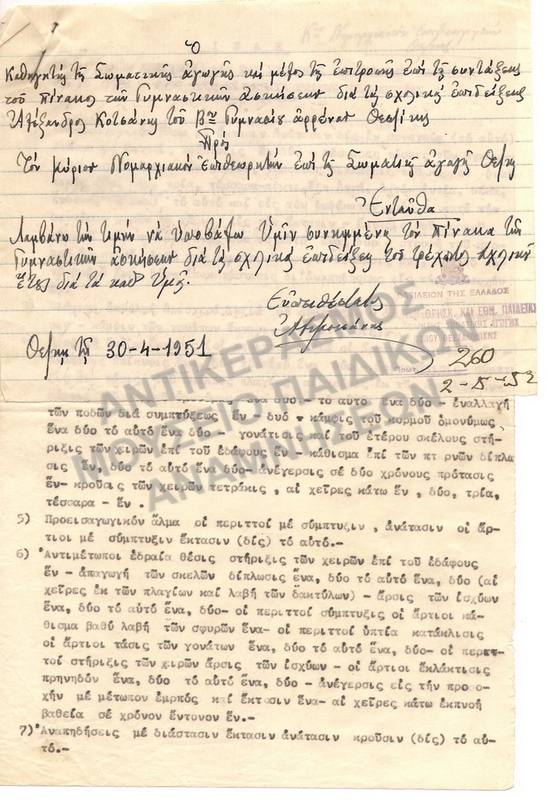 Ὁ
Καθηγητής τῆς Σωματικῆς ἀγωγῆς καί μέλος τῆς ἐπιτροπῆς ἐπί τῆς συντάξεως
τοῦ πίνακος τῶν Γυμναστικῶν ἀσκήσεων διά τάς σχολικάς ἐπιδείξεις
Ἀλέξανδρος Κοτσάνης τοῦ Βου Γυμνασίου ἀρρένων Θεσ/νίκης
Πρός
Τόν κύριον Νομαρχιακόν Ἐπιθεωρητήν ἐπί τῆς Σωματικῆς ἀγωγῆς
Ἐνταῦθα
Λαμβάνω τήν τιμήν νά ὑποβάλω Ὑμῖν συνημμένως τόν πίνακα τῶν
Γυμναστικῶν ἀσκήσεων διά τάς σχολικάς ἐπιδείξεις τοῦ τρέχοντος σχολικοῦ
ἔτους διά τά καθ' Ὑμᾶς.
Εὐπειθέστατος
30-4-1951
ΒΑΣΙΛΕΙΟΝ ΤΗΣ ΕΛΛΑΔΟΣ
ΘΡΗΣΚ. ΚΑΙ ΕΘΝ. ΠΑΙΔΕΙΑΣ
ΑΓΩΓΗΣ
ΘΕΣΣΑΛΟΝΙΚΗΣ
260
ΑΝΤΙΚΕΡΑΣΜΟΣ
ΜΟΥΣΕΙΟ ΠΑΙΔΙΚΩΝ
ΑΝΑΜΝΗΣΕΩΝ
ἕνα δύο.- τό αὐτό ἕνα δύο - ἐναλλαγή
τῶν ποδῶν διά συμπτύξεως ἕν - δυό - κάμψις τοῦ κορμοῦ ὁμονύμως
ἕνα δύο τό αὐτό ἕνα δύο - γονάτισις καί τοῦ ἑτέρου σκέλους στή-
ριξις τῶν χειρῶν ἐπί τοῦ ἐδάφους ἕν - κάθισμα ἐπί τῶν πτερνῶν δίπλω
σις ἕν, δύο τό αὐτό ἕνα δύο- ἀνέγερσις σέ δύο χρόνους πρότασις
ἕν- κροῦσις τῶν χειρῶν τετράκις , αἱ χεῖρες κάτω ἕν , δύο, τρία,
τέσσαρα - ἕν .
5) Προεισαγωγικόν ἅλμα οἱ περιττοί μέ σύμπτυξιν , ἀνάτασιν οἱ ἄρ-
τιοι μέ σύμπτυξιν ἔκτασιν (δίς) τό αὐτό.-
6) Ἀντιμέτωποι ἑδραία θέσις στήριξις τῶν χειρῶν ἐπί τοῦ ἐδάφους
ἕν - ἀπαγωγή τῶν σκελῶν δίπλωσις ἕνα, δύο τό αὐτό ἕνα, δύο (αἱ
χεῖρες ἐκ τῶν πλαγίων καί λαβή τῶν δακτύλων) - ἄρσις τῶν ἰσχύων
ἕνα, δύο τό αὐτό ἕνα, δύο- οἱ περιττοί σύμπτυξις οἱ ἄρτιοι κά-
θισμα βαθύ λαβή τῶν σφυρῶν ἕνα- οἱ περιττοί ὑπτία κατάκλισις
οἱ ἄρτιοι τάσις τῶν γονάτων ἕνα, δύο τό αὐτό ἕνα, δύο- οἱ περιτ-
τοί στήριξις τῶν χειρῶν ἄρσις τῶν ἰσχύων - οἱ ἄρτιοι ἐκλάκτισις
πρηνηδόν ἕνα, δύο τό αὐτό ἕνα, δύο - ἀνέγερσις εἰς τήν προσο-
χήν μέ μέτωπον ἐμρπός καί ἔκτασιν ἕνα- αἱ χεῖρες κάτω ἐκπνοή
βαθεῖα σέ χρόνον ἔντονον ἕν.-
7) Ἀναπηδήσεις μέ διάστασιν ἔκτασιν ἀνάτασιν κροῦσιν (δίς) τό αὐ-
τό.-